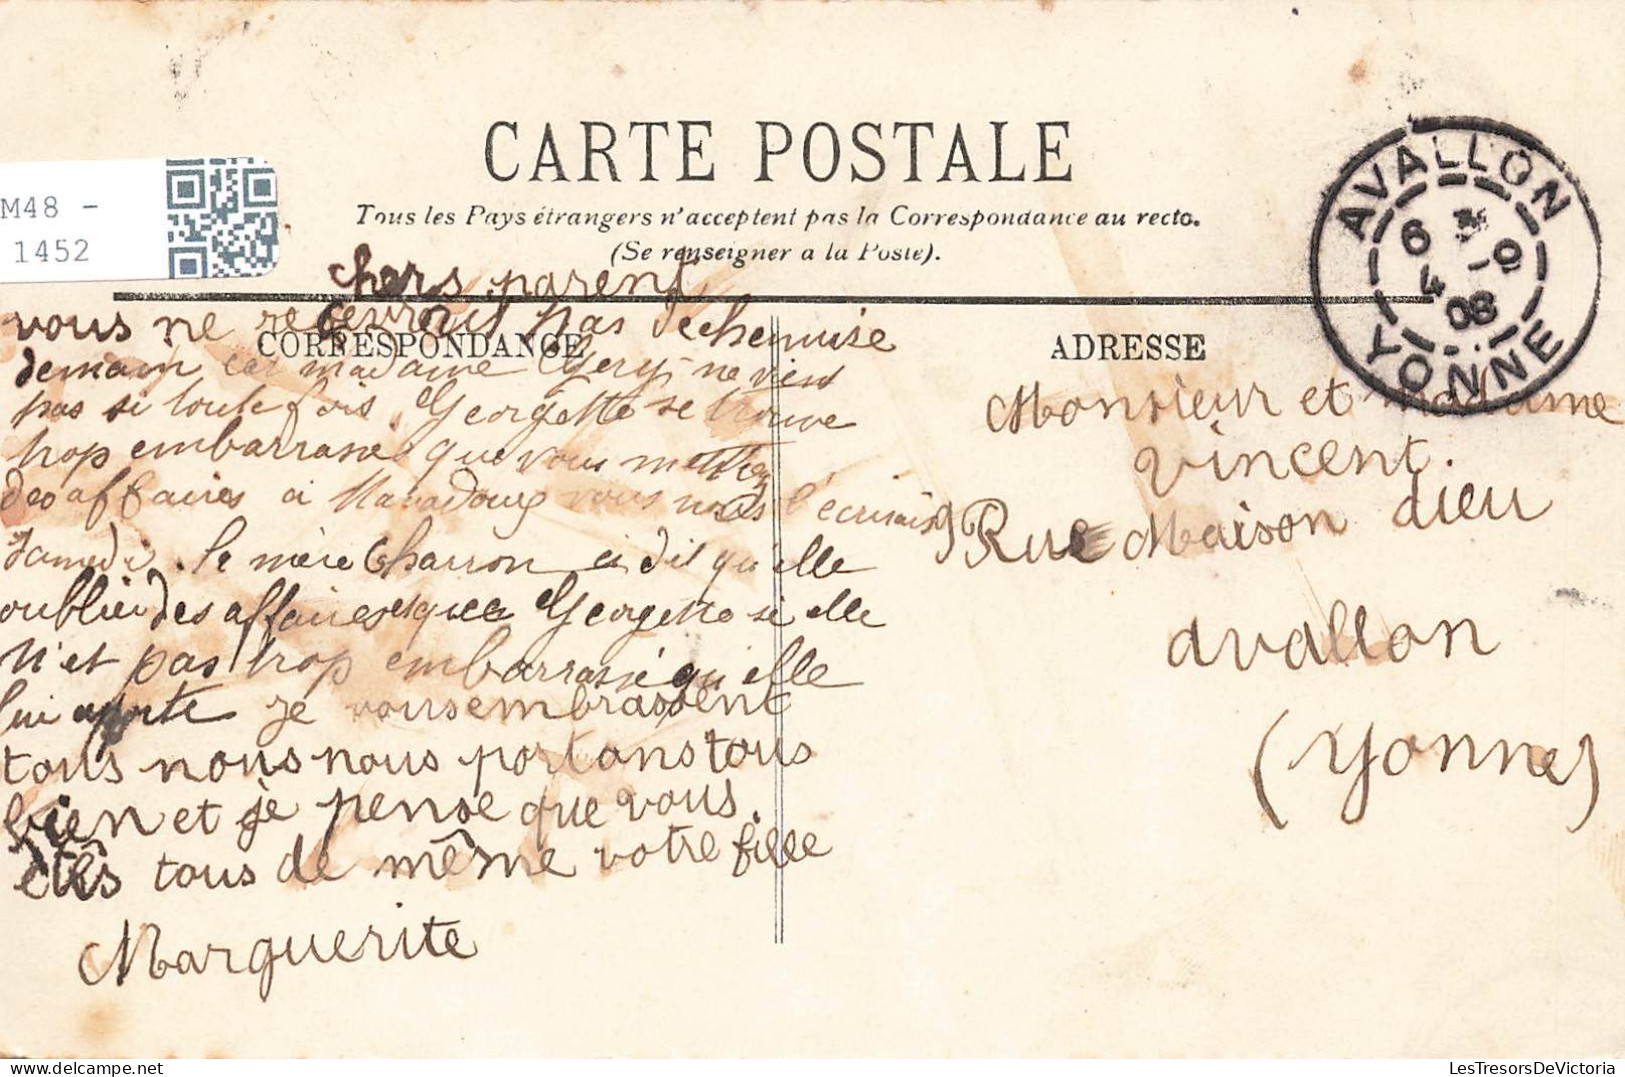 CARTE POSTALE
Tous les Pays étrangers n'acceptent pas la Correspondance au recto.
(Se renseigner a la Poste).
M48 -
1452
AVALLON
6
4 08
YONNE
CORRESPONDANCE
chers parent
vous ne recevrons pas de chemise
demain car madame Gery ne vient
pas si toute fois Georgette se trouve
trop embarrassé que vous mettiez
des affaires a vous l'écrirais
samedi. la mère Charron a dit qu'elle
oublié des affaires que Georgette si elle
n'et pas trop embarrassé qu'elle
lui apporte je vous embrassent
tous nous nous portons tous
bien et je pense que vous
êtes tous de même votre fille
Marguerite
ADRESSE
Monsieur et Madame
Vincent.
9 Rue Maison dieu
avallon
(Yonne)
LesTresorsDeVictoria